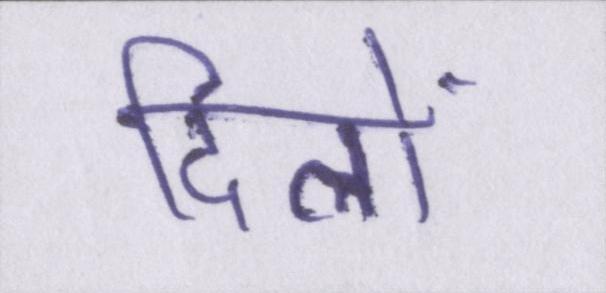 दिलों